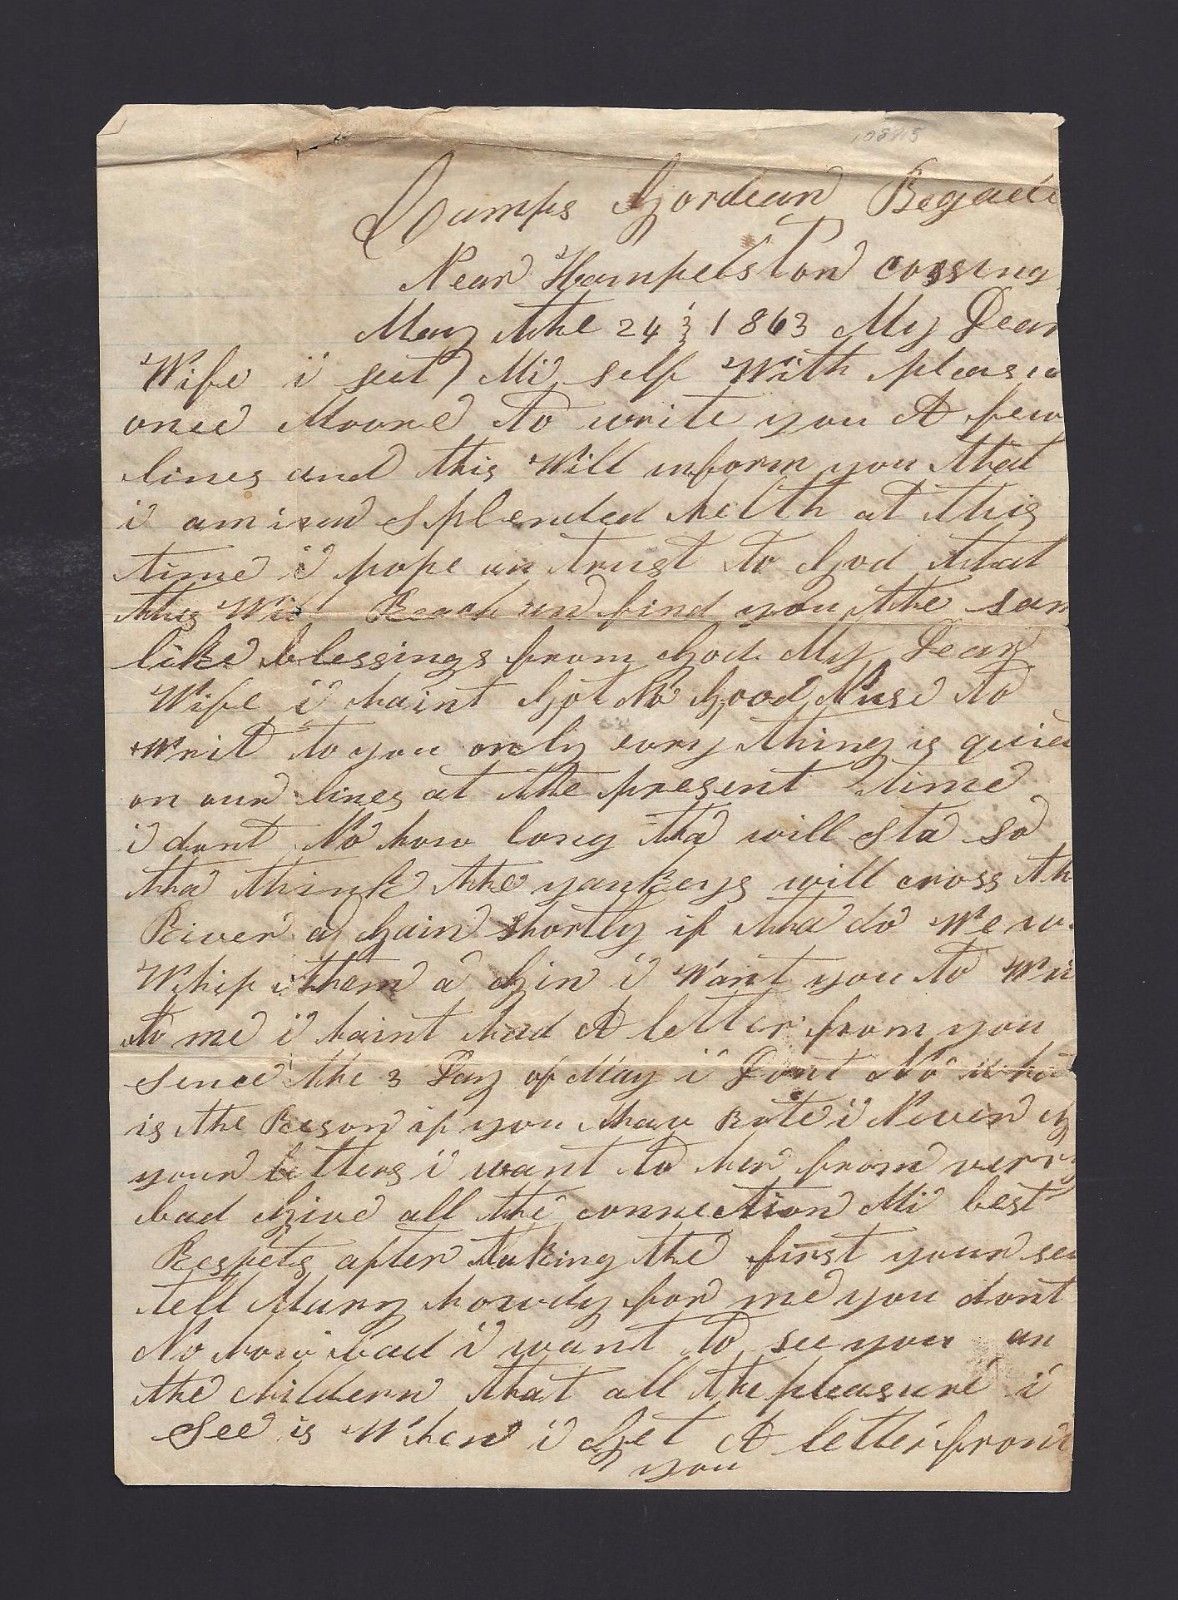 Camps Gordean Begade
Near Hampelston cossing
May the 24 1863 My Dear
Wife i seat Mi self With pleasu
once Moore to write you A few
lines and this Will inform you that
i am in Splended helth at this
time i hope an trust to God that
this Will Reach an find you the sam
like blessings from God My Dear
Wife i haint Got No Good Nuse to
Writ to you only evry thing is quie
on our lines at the present time
i dont No how long tha will sta so
tha think the yankeys will cross th
River a Gain shortly if tha do We w
Whip them a Gin i Want you to Wri
to me i haint had A letter from you
sence the 3 Day of May i Dont No wha
is the Reson if you hav Rote i Never g
your letters i want to her from verry
bad Give all the connection Mi best
Respets after taking the first your se
tell Mary howdy for me you dont
No how bad i want to see you an
the childern that all the pleasure i
See is When i Get A letter from
you